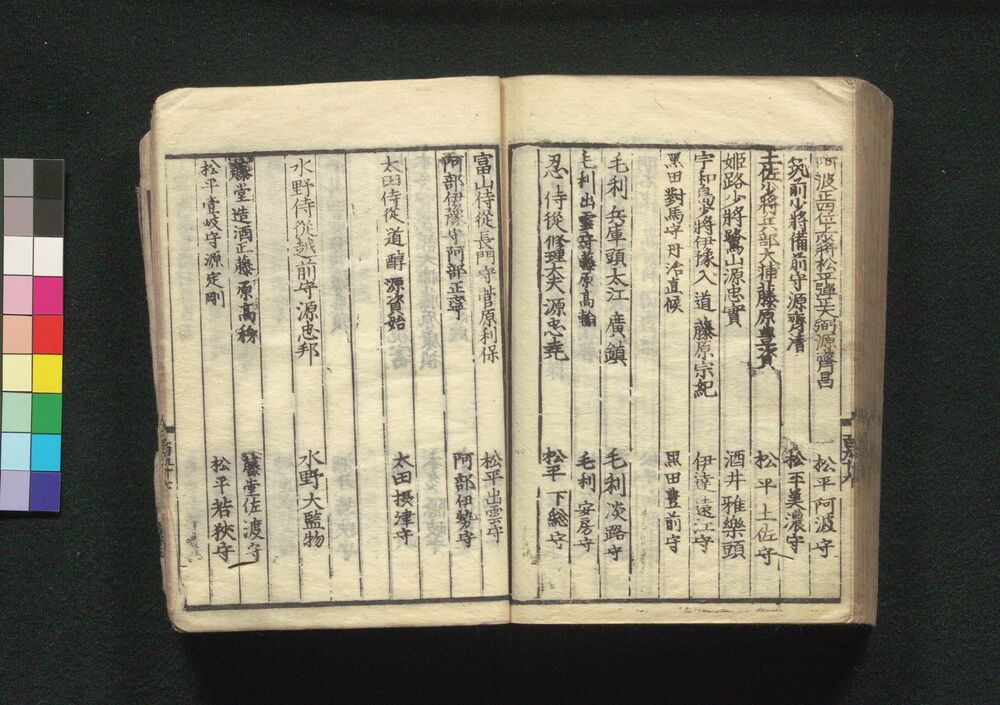 阿波正四位上少将松平弾正大弼源齊昌 松平阿波守
筑前少將備前守源齊清 松平美濃守
土佐少將兵部大輔藤原豊資 松平土佐守
姫路少將鷺山源忠實 酒井雅樂頭
宇和島少將伊豫入道藤原宗紀 伊達遠江守
黒田對馬守丹治直候 黒田豊前守
毛利兵庫頭大江廣鎮 毛利淡路守
毛利出雲守藤原高翰 毛利安房守
忍侍從修理大夫源忠堯 松平下総守
富山侍從長門守菅原利保 松平出雲守
阿部伊豫守阿部正寧 阿部伊勢守
太田侍從道醇源資始 太田摂津守
水野侍從越前守源忠邦 水野大監物
藤堂造酒正藤原高秭 藤堂佐渡守
松平壹岐守源定剛 松平若狹守